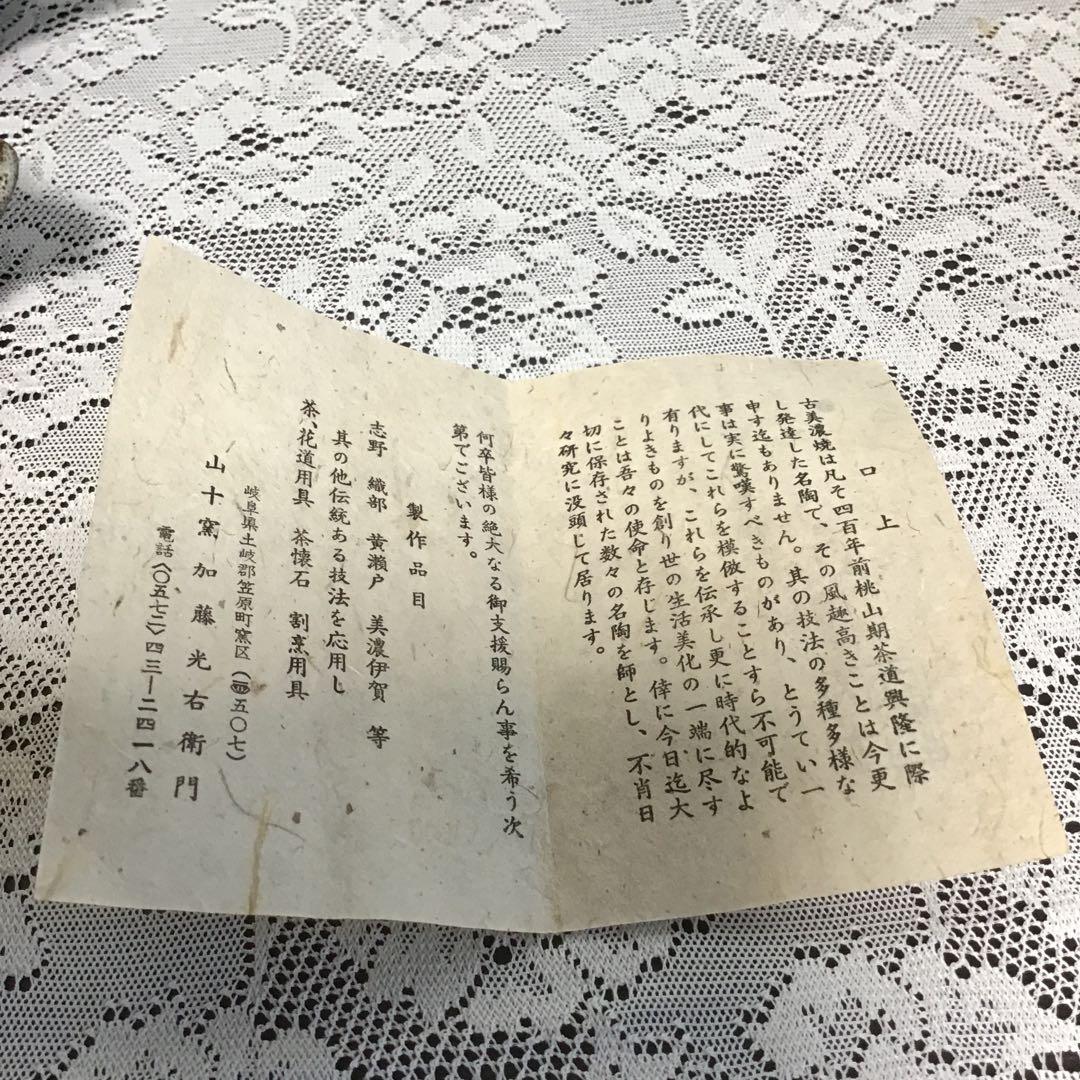 口上
古美濃焼は凡そ四百年前桃山期茶道興隆に際
し発達した名陶で、その風趣高きことは今更
申す迄もありません。其の技法の多種多様な
事は実に驚嘆すべきものがあり、とうてい一
代にしてこれらを模倣することすら不可能で
有りますが、これらを伝承し更に時代的なよ
りよきものを創り世の生活美化の一端に尽す
ことは吾々の使命と存じます。倖に今日迄大
切に保存された数々の名陶を師とし、不肖日
々研究に没頭じて居ります。
何卒皆様の絶大なる御支援賜らん事を希う次
第でございます。
製作品目
志野 織部 黄瀬戸 美濃伊賀 等
其の他伝統ある技法を応用し
茶、花道用具 茶懐石 割烹用具
岐阜県土岐郡笠原町窯区(〒五〇七)
山十窯 加藤光右衛門
電話〈〇五七二〉四三ー二四一八番